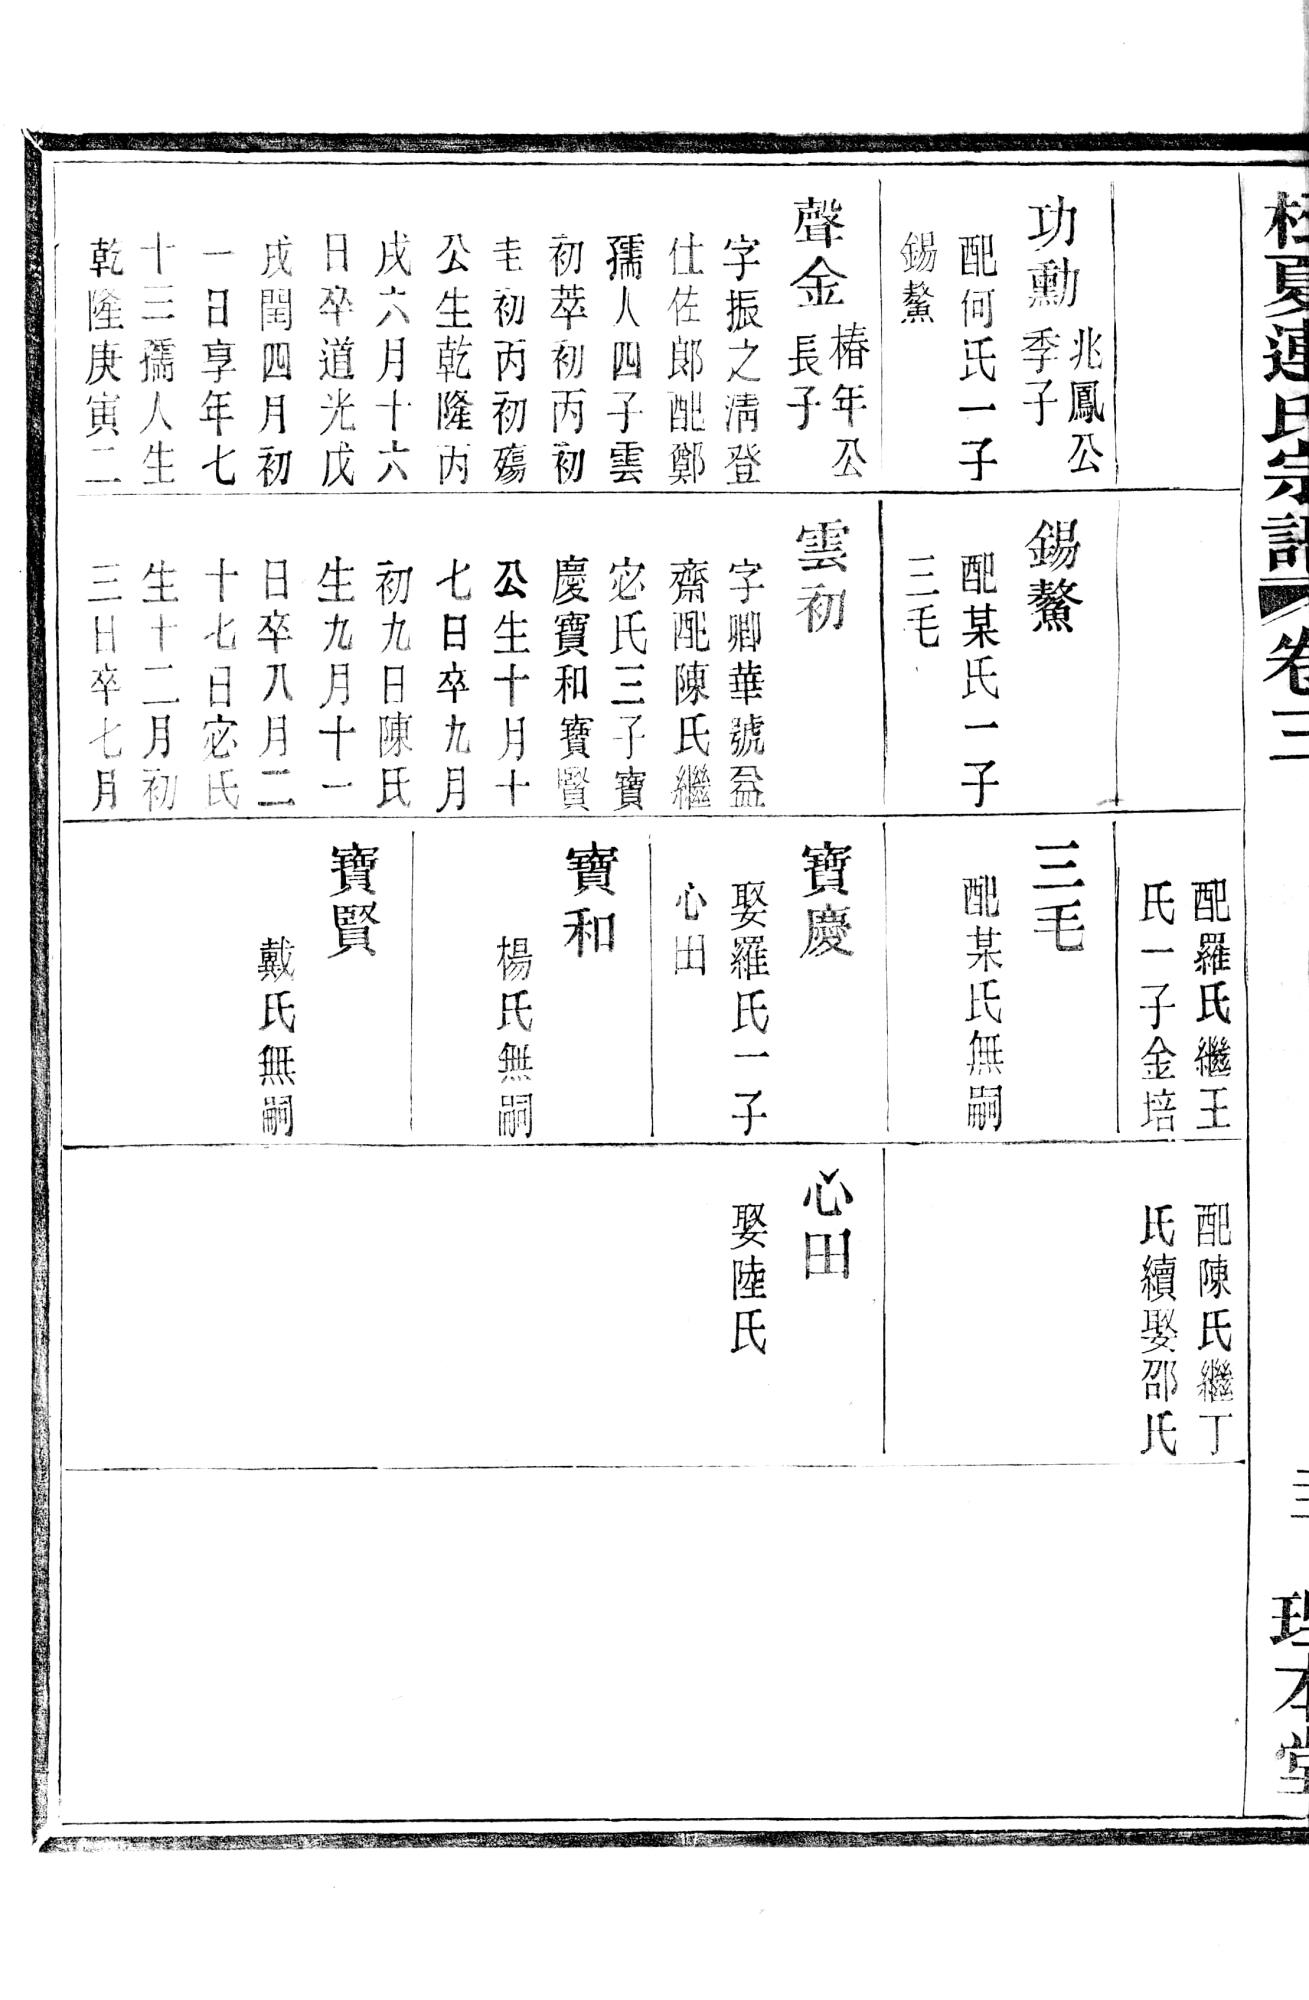 夏連氏宗譜
卷三
理本堂
功勳
兆鳳公
季子
配何氏一子
錫鰲
聲金
椿年公
長子
字振之淸登
仕佐郎配鄭
孺人四子雲
初萃初丙初
初丙初殤
公生乾隆丙
戌六月十六
日卒道光戊
戌閏四月初
一日享年七
十三孺人生
乾隆庚寅二
錫鰲
配某氏一子
三毛
雲初
字卿華號益
齋配陳氏繼
宓氏三子寶
慶寶和寶賢
公生十月十
七日卒九月
初九日陳氏
生九月十一
日卒八月二
十七日宓氏
生十二月初
三日卒七月
配羅氏繼王
氏一子金培
三毛
配某氏無嗣
寶慶
娶羅氏一子
心田
寶和
楊氏無嗣
寶賢
戴氏無嗣
配陳氏繼丁
氏續娶邵氏
心田
娶陸氏